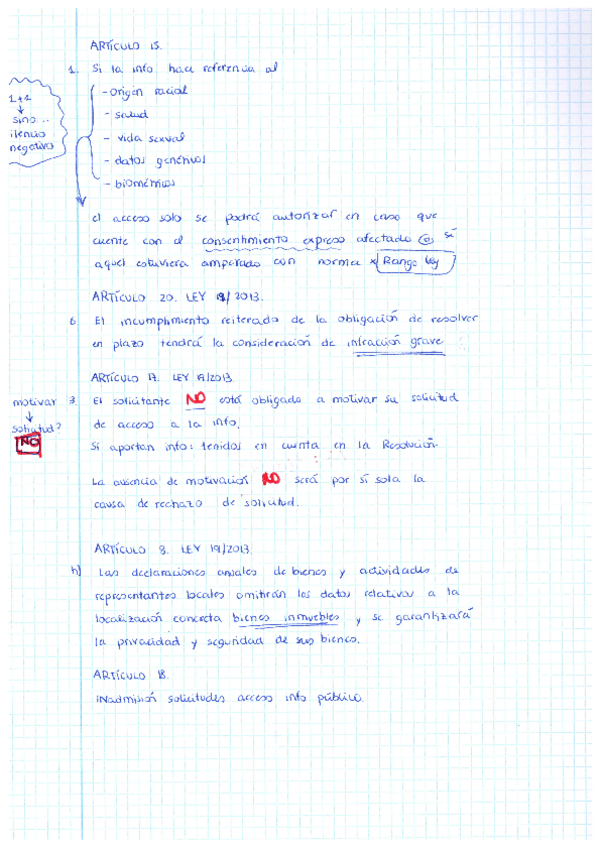 ARTÍCULO 15.
1. Si la info hace referencia al
- origen racial
- salud
- vida sexual
- datos genéricos
- biométricos
1+1
↓
sino...
ilencio
negativo
el acceso solo se podrá autorizar en caso que
cuente con el consentimiento expreso afectado o si
aquel estuviera amparado con norma x Rango ley
ARTÍCULO 20. LEY 19/2013.
6 El incumplimiento reiterado de la obligación de resolver
en plazo tendrá la consideración de infracción grave
ARTÍCULO 17. LEY 19/2013
3. El solicitante NO está obligado a motivar su solicitud
de acceso a la info.
motivar
↓
solicitud?
NO
Si aportan info: tenidos en cuenta en la Resolución.
La ausencia de motivación NO será por sí sola la
causa de rechazo de solicitud.
ARTÍCULO 8. LEY 19/2013.
h) Las declaraciones anuales de bienes y actividades de
representantes locales omitirán los datos relativos a la
localización concreta bienes inmuebles y se garantizará
la privacidad y seguridad de sus bienes.
ARTÍCULO 18.
INadmisión solicitudes acceso info público